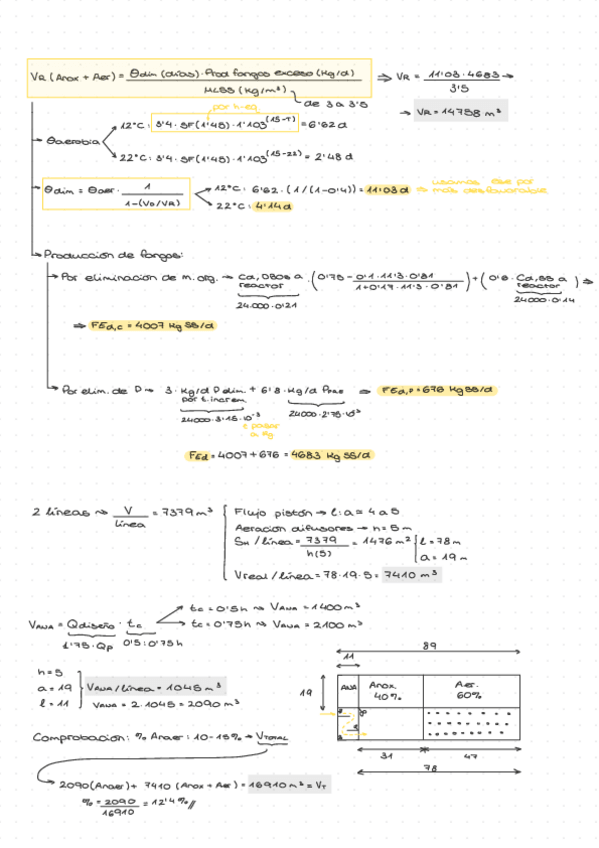 VR (Anox + Aer) = θdim (días) · Prod fangos exceso (Kg/d) / MLSS (Kg/m³) ⇒ VR = 11'03 · 4683 / 3'5 →
de 3 a 3'5
→ VR = 14758 m³
por h-eq
θaerobia
12°C: 3'4 · SF(1'45) · 1'103^(15-T) = 6'62 d
22°C: 3'4 · SF(1'45) · 1'103^(15-22) = 2'48 d
θdim = θaer · 1 / 1-(VD/VR)
12°C: 6'62 · (1/(1-0'4)) = 11'03 d ⇒ usamos ese por más desfavorable
22°C: 4'14 d
Producción de fangos:
Por eliminación de m. org. → Cd, DBO5 a reactor · (0'75 - 0'1·11'3·0'81 / 1+0'17·11'3·0'81) + (0'6 · Cd,SS a reactor) ⇒
24.000·0'21
24.000·0'14
⇒ FEd,c = 4007 Kg SS/d
Por elim. de P → 3 · Kg/d P elim. + 6'8 · Kg/d P ⇒ FEd,P = 676 Kg SS/d
por t. increm.
24000·3'15·10⁻³
24000·2'75·10⁻³
pasar a Kg
FEd = 4007 + 676 = 4683 Kg SS/d
2 líneas → V / línea = 7379 m³
Flujo pistón → l:a = 4 a 5
Aeración difusores → h = 5 m
SH / línea = 7379 / h(5) = 1476 m²
l = 78 m
a = 19 m
Vreal / línea = 78 · 19 · 5 = 7410 m³
VANA = Qdiseño · tc
1'75 · Qp
0'5 : 0'75 h
tc = 0'5h → VANA = 1400 m³
tc = 0'75h → VANA = 2100 m³
h = 5
a = 19
l = 11
VANA / línea = 1045 m³
VANA = 2 · 1045 = 2090 m³
89
11
19
ANA
Anox. 40%
Aer. 60%
31
47
78
Comprobación: % Anaer: 10-15% → VTOTAL
2090 (Anaer) + 7410 (Anox + Aer) = 16910 m³ = VT
% = 2090 / 16910 = 12'4 % //